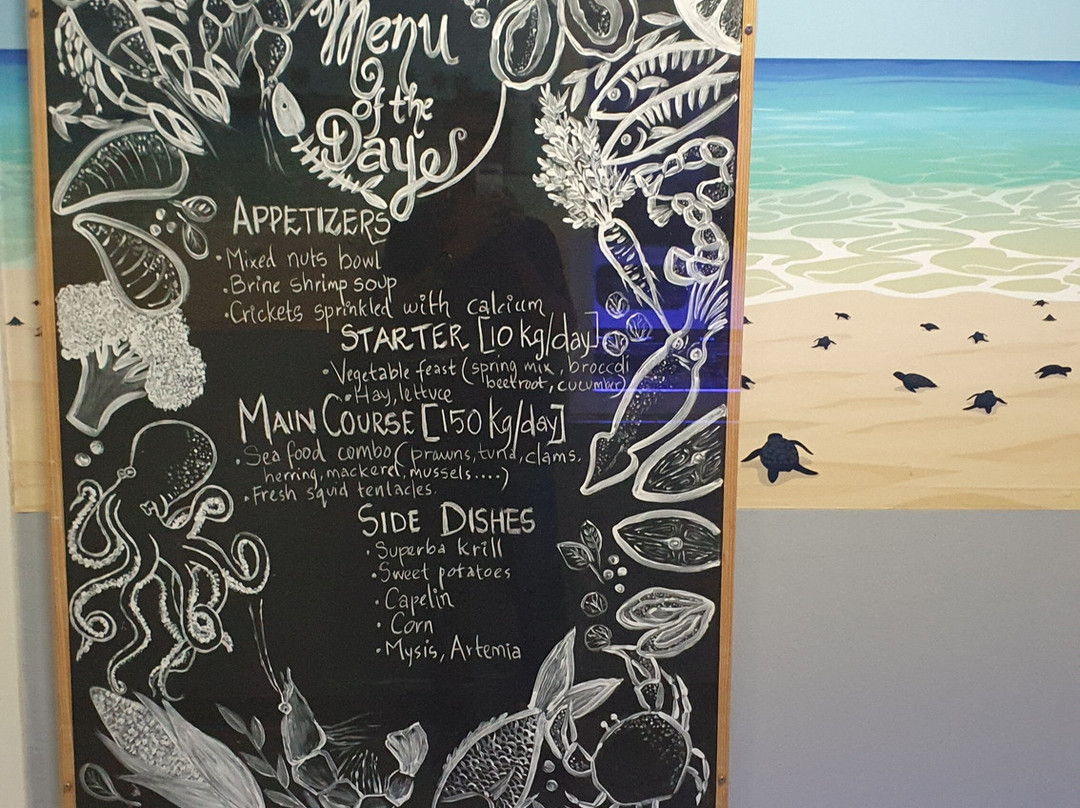 Menu
of the
Day
APPETIZERS
• Mixed nuts bowl
• Brine shrimp soup
• Crickets sprinkled with calcium
STARTER [10 kg/day]
• Vegetable feast (spring mix, broccoli
beetroot, cucumber)
• Hay, lettuce
MAIN COURSE [150 kg/day]
• Sea food combo (prawns, tuna, clams,
herring, mackerel, mussels....)
• Fresh squid tentacles.
SIDE DISHES
• Superba krill
• Sweet potatoes
• Capelin
• Corn
• Mysis, Artemia